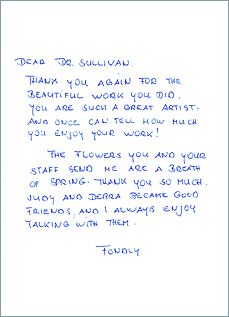 DEAR DR. SULLIVAN.
THANK YOU AGAIN FOR THE
BEAUTIFUL WORK YOU DID.
YOU ARE SUCH A GREAT ARTIST.
AND ONCE CAN TELL HOW MUCH
YOU ENJOY YOUR WORK!
THE FLOWERS YOU AND YOUR
STAFF SEND ME ARE A BREATH
OF SPRING. THANK YOU SO MUCH.
JUDY AND DEBRA BECAME GOOD
FRIENDS, AND I ALWAYS ENJOY
TALKING WITH THEM.
FONDLY